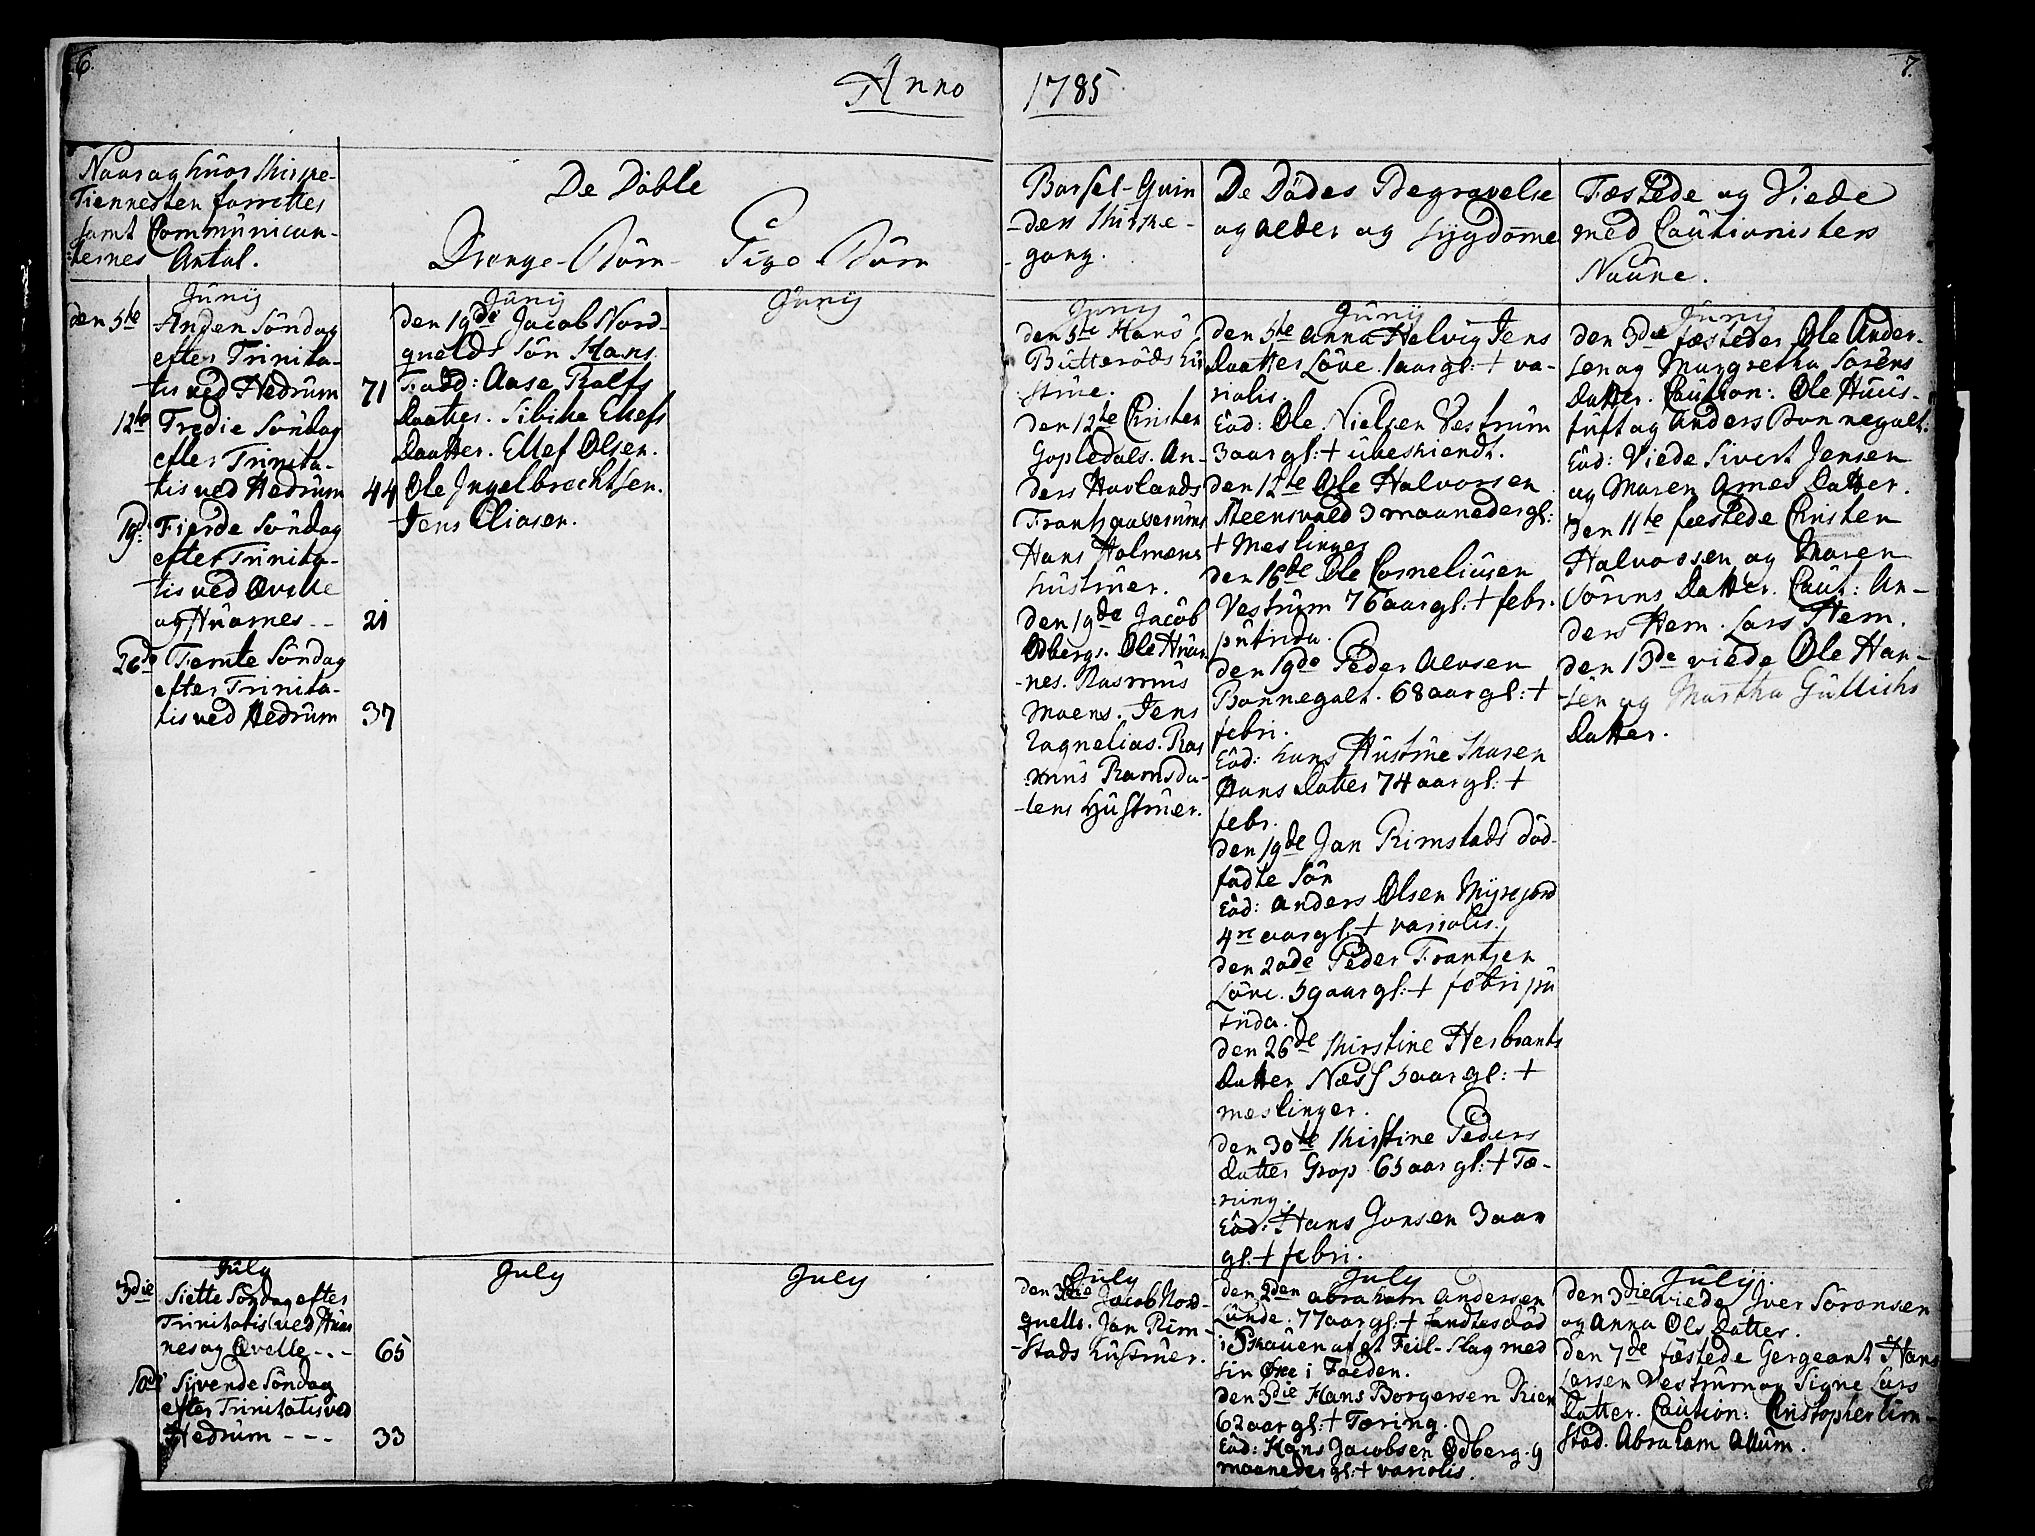 6.
Anno
1785
7.
Naar og huor Kirke-
Tiennesten forrettes
samt Communican-
ternes Antal.
De Döbte
Drenge-Börn
Pige Börn
Barsel-Quin
-ders Kirke-
gang.
De Dödes Begravelse
og alder og sygdomme
Fæstede og Viede
med Cautionisters
Naune.
Junij
den 5te Anden Söndag
efter Trinita-
tis ved Hedrum 71
12te Tredie Söndag
efter Trinita-
tis ved Hedrum 44
19de Fierde Söndag
efter Trinita-
tis ved Qvelle
og Huarnes - - 21
26de Femte Söndag
efter Trinita-
tis ved Hedrum 37
Junij
den 19de Jacob Nord-
quelds Sön Hans.
Fadd: Aase Rolfs
Daatter. Sibille Ellefs
Daatter. Ellef Olsen.
Ole Ingelbrechtsen.
Jens Eliasen.
Junij
Junij
den 5te Hans
Butteröds hu
strue.
den 12te Christen
Gopledals. An-
ders Havlands
Frantz
Hans Holmens
hustruer.
den 19de Jacob
Odbergs. Ole Huar
-nes. Rasmus
Moens. Jens
Ras
mus Ramsda-
lens Hustruer.
Junij
den 5te Anna Helvig Jens
Daatter Löve. 1 aar gl: + va-
riolis.
Eöd: Ole Nielsen Vestrum
3 aar gl: + ubeskiendt.
den 12te Ole Halvorsen
Steensvald 3 maaneder gl:
+ Meslinger
den 16de Ole Corneliusen
Vestrum 76 aar gl: + febr.
putrida.
den 19de Peder Alvsen
Bonnegalt. 68 aar gl: +
febri.
Eöd: hans Hustrue Karen
Hans Datter 74 aar gl: +
febr.
den 19de Jan Rimstads död-
födte Sön
Eöd: Anders Olsen Myrejord
4re aar gl + variolis.
den 20de Peder Frantsen
Löve. 59 aar gl: + febri pu
trida.
den 26de Kirstine Herbrants
Datter Næss 5 aar gl: +
meslinger.
den 30te Kirstine Peders
datter Grop 65 aar gl: + Tæ-
ring.
Eöd: Hans Jonsen 3 aar
gl: + febri.
Junij
den 3die fæstedes Ole Ander-
sen og Margretha Sörens
Datter. Caution: Ole Huus-
tuft og Anders Bonnegalt.
Eöd: Viede Sivert Jensen
og Maren Arnes Datter.
den 11te fæstede Christen
Halvorsen og Maren
Sörens Datter. Caut: An-
ders Hem. Lars Hem.
den 13de viede Ole Han-
sen og Martha Gullichs
Datter.
July
3die Siette Söndag efter
Trinitatis ved Huar
nes og Qvelle - - - 65
10de Syvende Söndag
efter Trinitatis ved
Hedrum - - - 33
July
July
July
den 3die Jacob Nord-
quells. Jan Rim-
-stads hustruer.
July
den 2den Abraham Andersen
Lunde. 77 aar gl: + fandtes död
i Skauen af et Feil-Slag med
sin Öxe i Foeden.
den 3die Hans Borgersen Kien
62 aar gl: + Tæring.
Eöd: Hans Jacobsen Odberg. 9
maaneder gl: + variolis.
Julij.
den 3die viede Iver Sörensen
og Anna Ols Datter.
den 7de fæstede Sergeant Hans
Larsen Vestrum og Signe Lars
Datter. Caution: Christopher Rim-
stad. Abraham Allum.